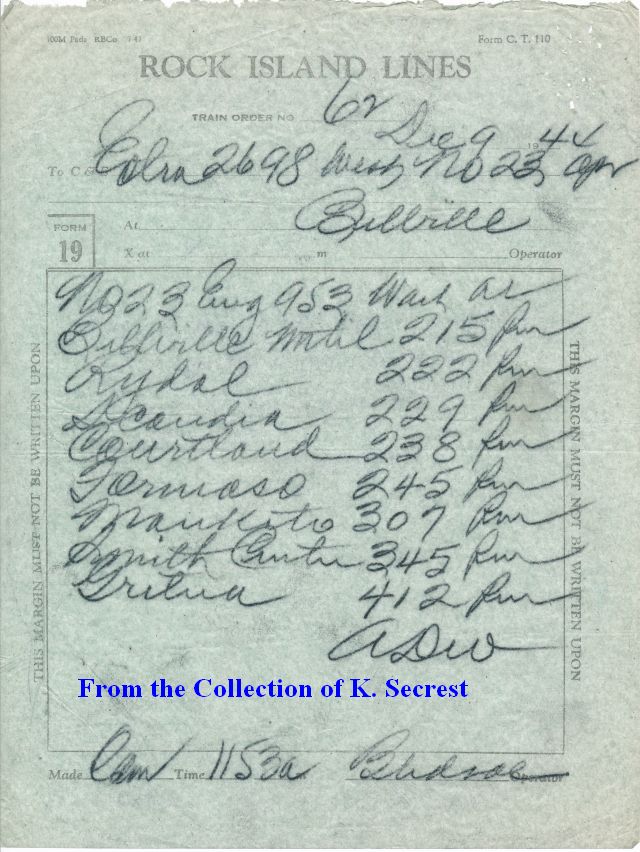 100M Pads RBCo 7 43 Form C. T. 110
ROCK ISLAND LINES
TRAIN ORDER NO. 62
Dec 9 1944
To C & E Extra 2698 West No 23 Opr
Bellville
FORM 19
At
X at m Operator
No 23 Eng 953 Wait at
Bellville until 215 Pm
Rydal 222 Pm
Scandia 229 Pm
Courtland 238 Pm
Formoso 245 Pm
Mankato 307 Pm
Smith Center 345 Pm
Gretna 412 Pm
ADW
THIS MARGIN MUST NOT BE WRITTEN UPON
THIS MARGIN MUST NOT BE WRITTEN UPON
From the Collection of K. Secrest
Made Com Time 1153a Operator